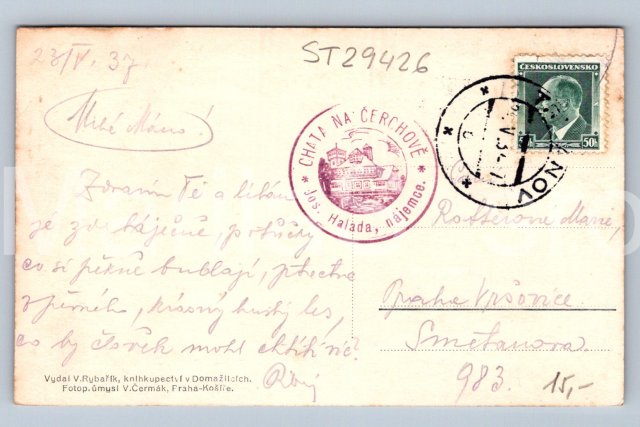 23/V. 37.
ST29426
Milé Máno!
Zdravím Tě a líbám
je zde báječně, potůčky
co si pěkně bublají, ptactva
zpěvného, krásný hustý les,
co by člověk mohl chtít víc.
CHATA NA ČERCHOVĚ
Jos. Halada, nájemce.
ČESKOSLOVENSKO
50h
ANOV
V.37
Marie,
Praha Vršovice
Smetanova
983.
15,-
Vydal V.Rybařík, knihkupectví v Domažlicích.
Fotop.úmysl V.Čermák, Praha-Košíře.